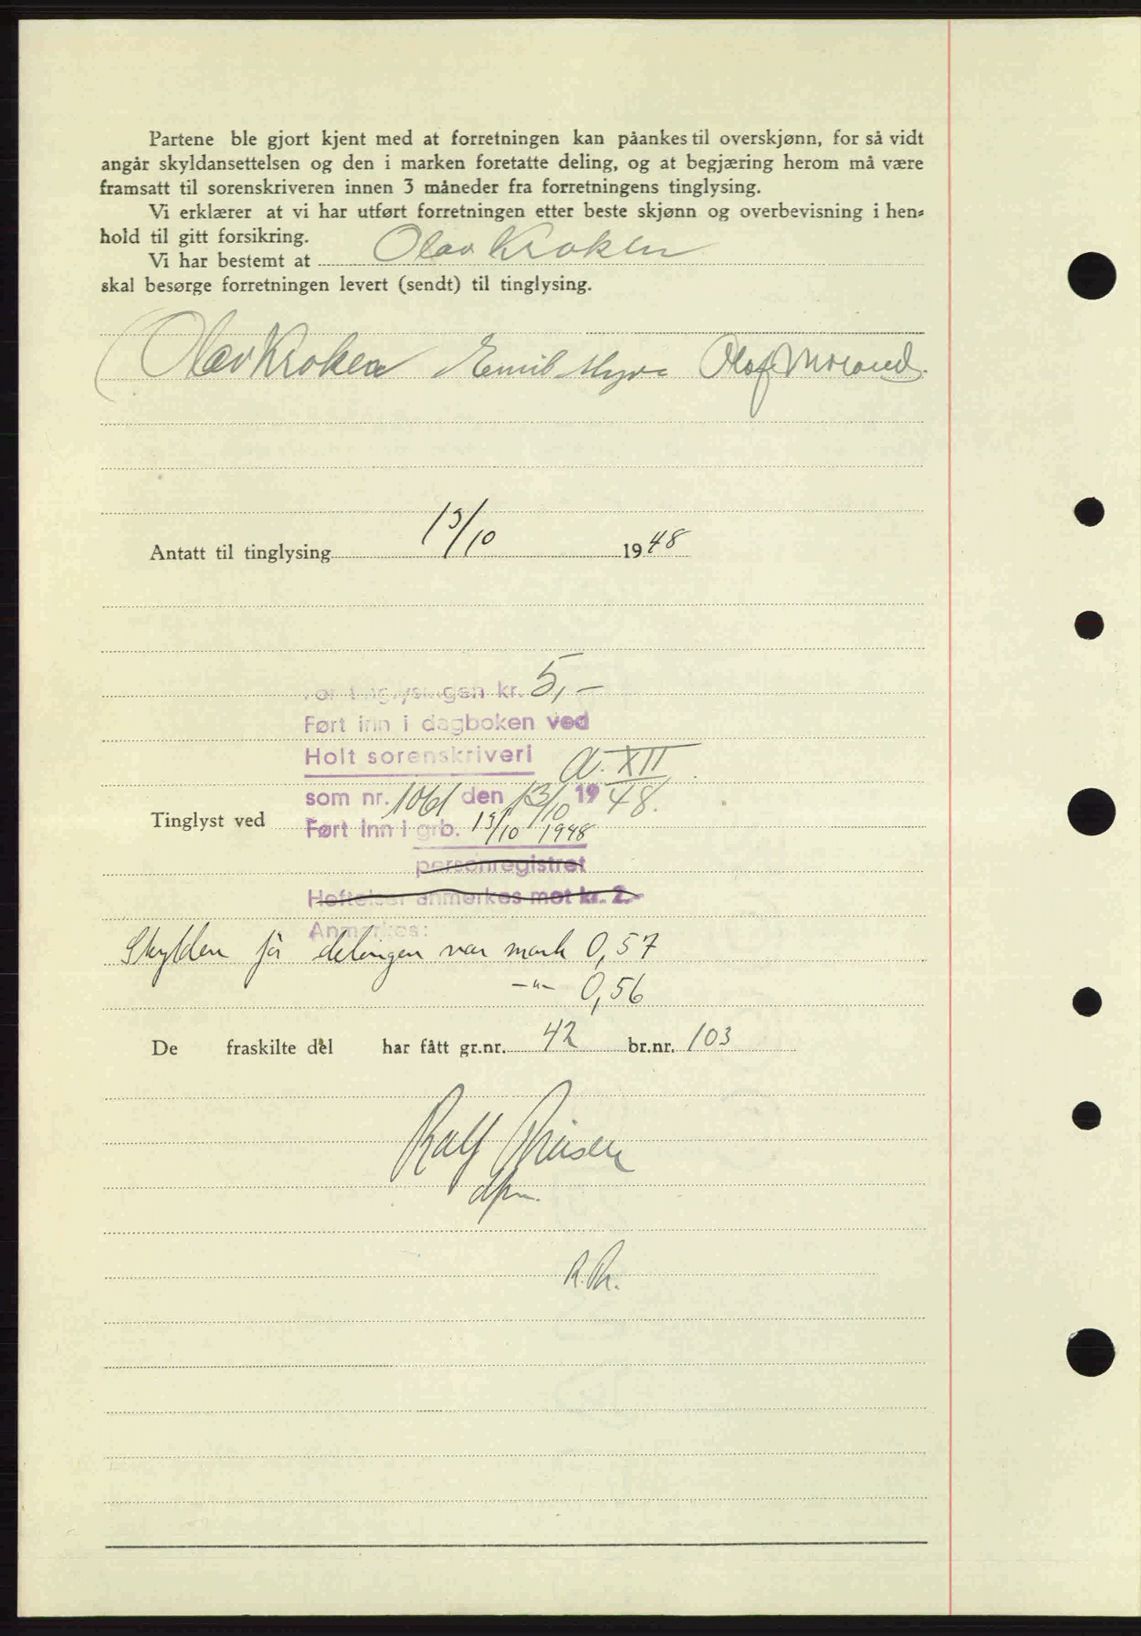 Partene ble gjort kjent med at forretningen kan påankes til overskjønn, for så vidt
angår skyldansettelsen og den i marken foretatte deling, og at begjæring herom må være
framsatt til sorenskriveren innen 3 måneder fra forretningens tinglysing.
Vi erklærer at vi har utført forretningen etter beste skjønn og overbevisning i hen=
hold til gitt forsikring.
Vi har bestemt at Olav Kroken
skal besørge forretningen levert (sendt) til tinglysing.
Olav Kroken Emil Myra Olaf
Antatt til tinglysing 13/10 1948
For tinglysingen kr. 5,-
Ført inn i dagboken ved
Holt sorenskriveri a. XII
som nr. 1061 den 13/10 1948.
Tinglyst ved Ført inn i grb. 15/10 1948
personregistret
Heftelser anmerkes mot kr. 2.-
Anmerkes:
Skylden før delingen var mark 0,57
-"- 0,56
De fraskilte del har fått gr.nr. 42 br.nr. 103
Ralf